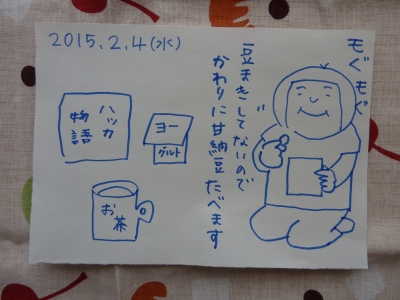 2015.2.4(水)
モぐ モぐ
豆まきしてないので
かわりに甘納豆たべます
ハッカ
物語
ヨー
グルト
お茶